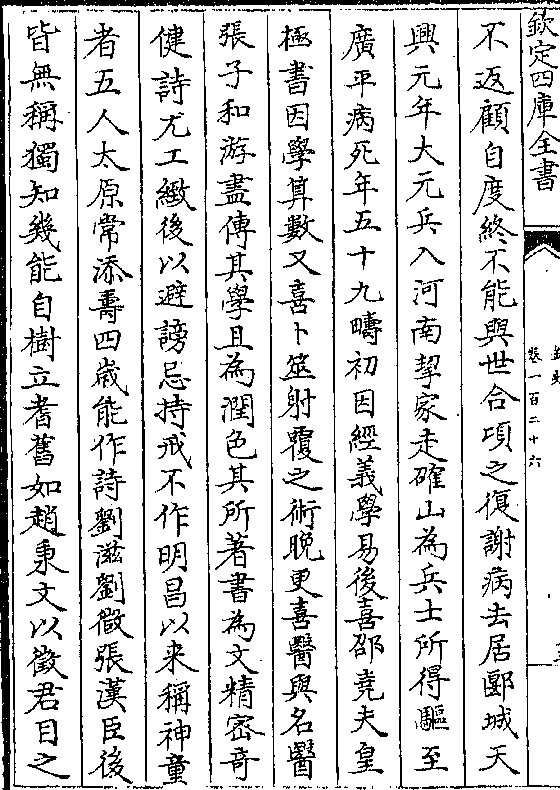 欽定四庫全書
卷一百二十六
不返顧自度終不能與世合項之復謝病去居郾城天
興元年大元兵入河南挈家走確山為兵士所得驅至
廣平病死年五十九疇初因經義學易後喜邵堯夫皇
極書因學算數又喜卜筮射覆之術晚更喜醫與名醫
張子和游盡傳其學且為潤色其所著書為文精密奇
健詩尤工緻後以避謗忌持戒不作明昌以来稱神童
者五人太原常添壽四歲能作詩劉滋劉微張漢臣後
皆無稱獨知幾能自樹立耆舊如趙秉文以徵君目之